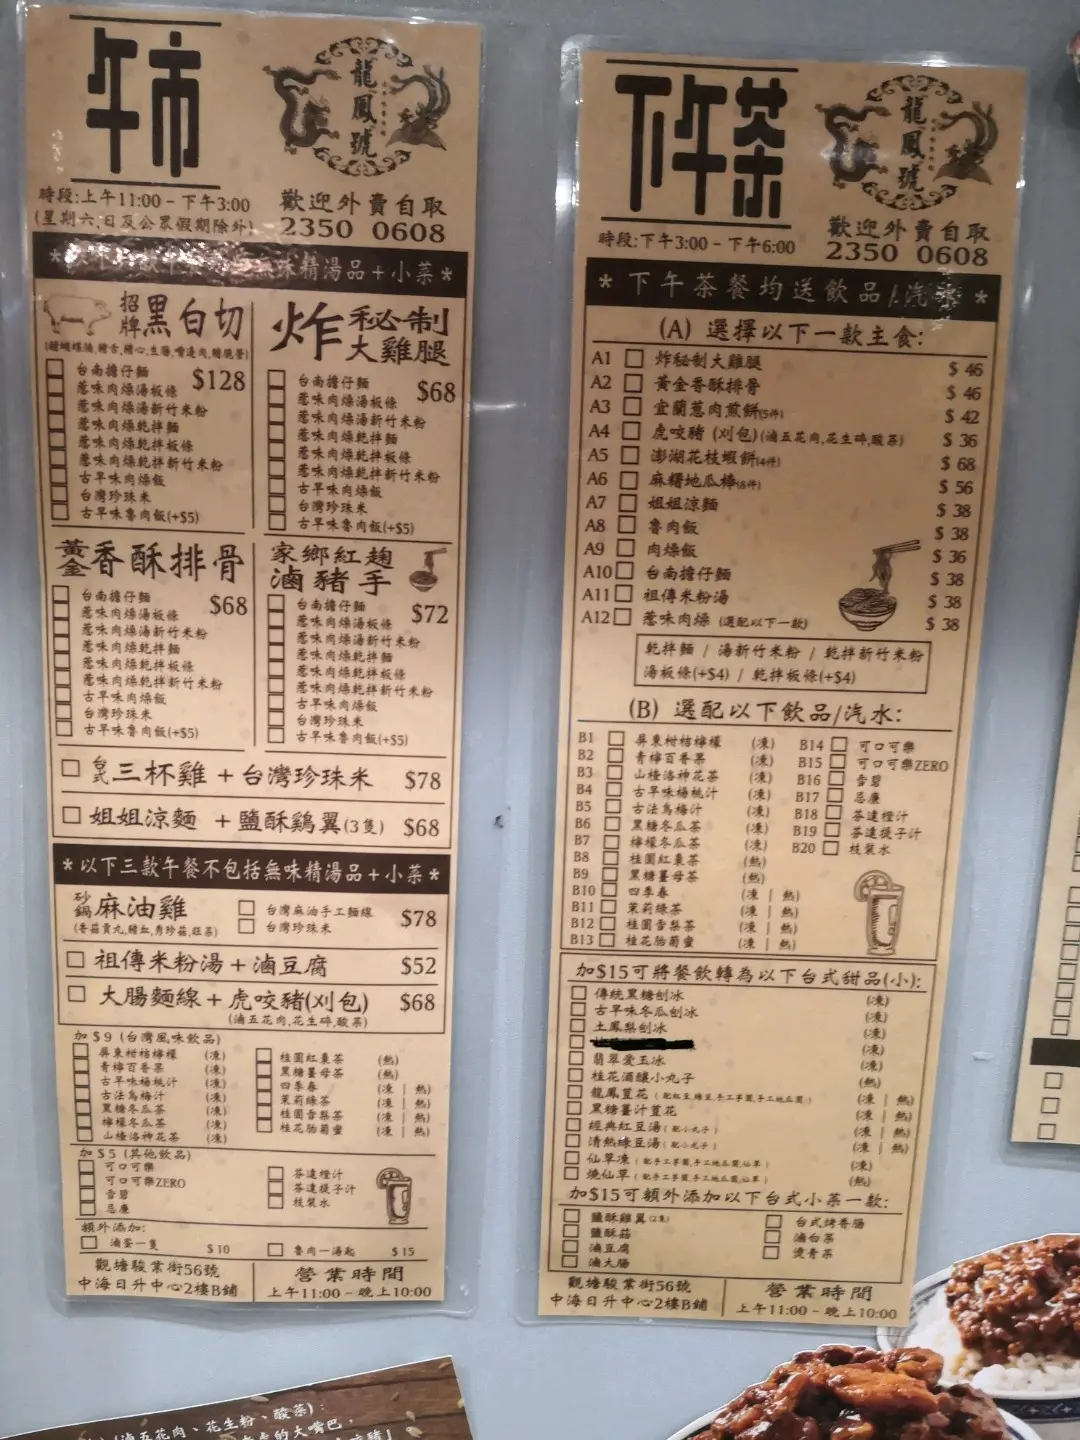 午市
龍鳳號
時段:上午11:00 - 下午3:00
(星期六,日及公眾假期除外)
歡迎外賣自取
2350 0608
無味精湯品+小菜*
招牌黑白切
$128
台南擔仔麵
惹味肉燥湯板條
惹味肉燥湯新竹米粉
惹味肉燥乾拌麵
惹味肉燥乾拌板條
惹味肉燥乾拌新竹米粉
古早味肉燥飯
台灣珍珠米
古早味魯肉飯(+$5)
炸秘制大雞腿
$68
台南擔仔麵
惹味肉燥湯板條
惹味肉燥湯新竹米粉
惹味肉燥乾拌麵
惹味肉燥乾拌板條
惹味肉燥乾拌新竹米粉
古早味肉燥飯
台灣珍珠米
古早味魯肉飯(+$5)
黃金香酥排骨
$68
台南擔仔麵
惹味肉燥湯板條
惹味肉燥湯新竹米粉
惹味肉燥乾拌麵
惹味肉燥乾拌板條
惹味肉燥乾拌新竹米粉
古早味肉燥飯
台灣珍珠米
古早味魯肉飯(+$5)
家鄉紅麴滷豬手
$72
台南擔仔麵
惹味肉燥湯板條
惹味肉燥湯新竹米粉
惹味肉燥乾拌麵
惹味肉燥乾拌板條
惹味肉燥乾拌新竹米粉
古早味肉燥飯
台灣珍珠米
古早味魯肉飯(+$5)
台式三杯雞 + 台灣珍珠米 $78
姐姐涼麵 + 鹽酥鷄翼(3隻) $68
*以下三款午餐不包括無味精湯品+小菜*
砂鍋麻油雞
(香菇貢丸,豬血,秀珍菇,旺菜)
台灣麻油手工麵線
台灣珍珠米
$78
祖傳米粉湯+滷豆腐 $52
大腸麵線+虎咬豬(刈包) $68
(滷五花肉,花生碎,酸菜)
加$9 (台灣風味飲品)
屏東柑桔檸檬 (凍)
青檸百香果 (凍)
古早味楊桃汁 (凍)
古法烏梅汁 (凍)
黑糖冬瓜茶 (凍)
檸檬冬瓜茶 (凍)
山楂洛神花茶 (凍)
桂圓紅棗茶 (熱)
黑糖薑母茶 (熱)
四季春 (凍 | 熱)
茉莉綠茶 (凍 | 熱)
桂圓雪梨茶 (凍 | 熱)
桂花胎菊蜜 (凍 | 熱)
加$5 (其他飲品)
可口可樂
可口可樂ZERO
雪碧
忌廉
芬達橙汁
芬達提子汁
枝裝水
額外添加:
滷蛋一隻 $10
魯肉一湯匙 $15
觀塘駿業街56號
中海日升中心2樓B鋪
營業時間
上午11:00 - 晚上10:00
下午茶
龍鳳號
時段:下午3:00 - 下午6:00
歡迎外賣自取
2350 0608
* 下午茶餐均送飲品/汽水 *
(A) 選擇以下一款主食:
A1 炸秘制大雞腿 $46
A2 黃金香酥排骨 $46
A3 宜蘭蔥肉煎餅(5件) $42
A4 虎咬豬 (刈包)(滷五花肉,花生碎,酸菜) $36
A5 澎湖花枝蝦餅(4件) $68
A6 麻糬地瓜棒(8件) $56
A7 姐姐涼麵 $38
A8 魯肉飯 $38
A9 肉燥飯 $36
A10 台南擔仔麵 $38
A11 祖傳米粉湯 $38
A12 惹味肉燥 (選配以下一款) $38
乾拌麵 / 湯新竹米粉 / 乾拌新竹米粉
湯板條(+$4) / 乾拌板條(+$4)
(B) 選配以下飲品/汽水:
B1 屏東柑桔檸檬 (凍)
B2 青檸百香果 (凍)
B3 山楂洛神花茶 (凍)
B4 古早味楊桃汁 (凍)
B5 古法烏梅汁 (凍)
B6 黑糖冬瓜茶 (凍)
B7 檸檬冬瓜茶 (凍)
B8 桂圓紅棗茶 (熱)
B9 黑糖薑母茶 (熱)
B10 四季春 (凍 | 熱)
B11 茉莉綠茶 (凍 | 熱)
B12 桂圓雪梨茶 (凍 | 熱)
B13 桂花胎菊蜜 (凍 | 熱)
B14 可口可樂
B15 可口可樂ZERO
B16 雪碧
B17 忌廉
B18 芬達橙汁
B19 芬達提子汁
B20 枝裝水
加$15可將餐飲轉為以下台式甜品(小):
傳統黑糖刨冰 (凍)
古早味冬瓜刨冰 (凍)
土鳳梨刨冰 (凍)
(凍)
翡翠愛玉冰 (凍)
桂花酒釀小丸子 (熱)
龍鳳荳花 (凍 | 熱)
黑糖薑汁荳花 (凍 | 熱)
經典紅豆湯(配小丸子) (凍 | 熱)
清熱綠豆湯(配小丸子) (凍 | 熱)
仙草凍(配手工芋圓,手工地瓜圓,仙草) (凍)
燒仙草(配手工芋圓,手工地瓜圓,仙草) (熱)
加$15可額外添加以下台式小菜一款:
鹽酥雞翼(2隻)
鹽酥菇
滷豆腐
滷大腸
台式烤香腸
滷白菜
燙青菜
觀塘駿業街56號
中海日升中心2樓B鋪
營業時間
上午11:00 - 晚上10:00
(滷五花肉、花生粉、酸菜):
的大嘴巴,